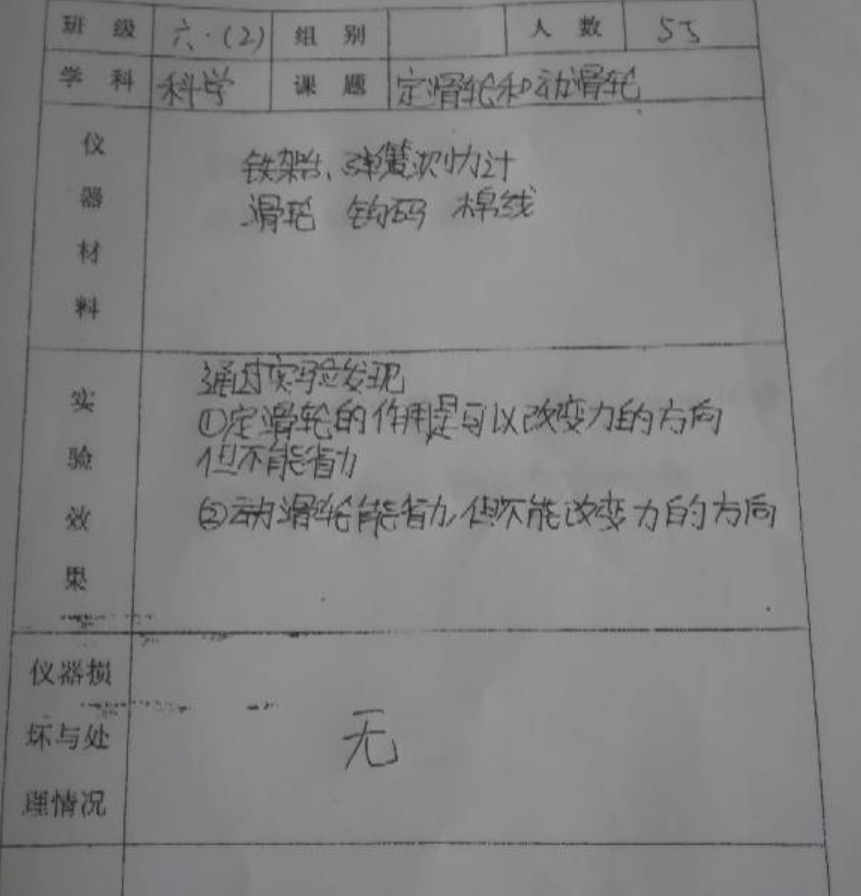 班级 六.(2) 组别 人数 55
学科 科学 课题 定滑轮和动滑轮
仪器材料
铁架台、弹簧测力计
滑轮 钩码 棉线
实验效果
通过实验发现
①定滑轮的作用是可以改变力的方向
但不能省力
②动滑轮能省力,但不能改变力的方向
仪器损
坏与处
理情况
无